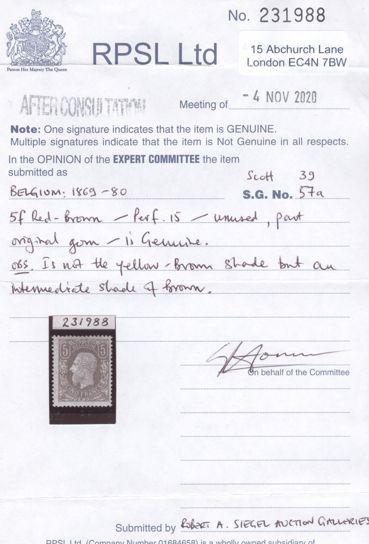 No. 231988
RPSL Ltd
15 Abchurch Lane
London EC4N 7BW
Patron Her Majesty The Queen
AFTER CONSULTATION
Meeting of - 4 NOV 2020
Note: One signature indicates that the item is GENUINE.
Multiple signatures indicate that the item is Not Genuine in all respects.
In the OPINION of the EXPERT COMMITTEE the item
submitted as
Scott 39
BELGIUM: 1869-80
S.G. No. 57a
5f Red-Brown - Perf. 15 - unused, part
original gum - is Genuine.
obs. Is not the yellow-Brown shade but an
intermediate shade of Brown.
231988
5 5
On behalf of the Committee
Submitted by ROBERT A. SIEGEL AUCTION GALLERIES
RPSL Ltd. (Company Number 01684658) is a wholly owned subsidiary of